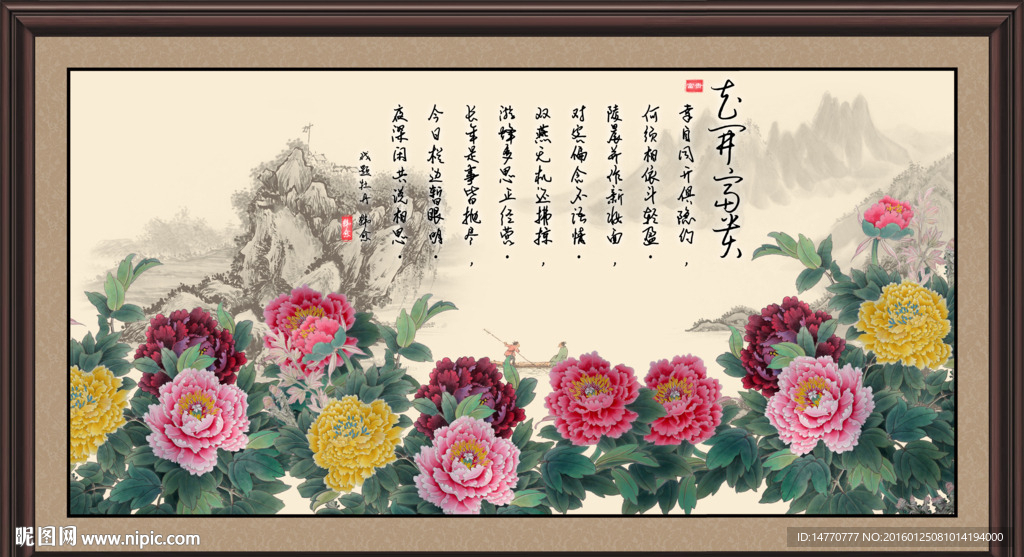 花开富贵
幸自同开俱隐约,
何须相依斗轻盈·
陵晨并作新妆面,
对客偏含不语情·
双燕无机还拂掠,
游蜂多思正经营·
长年是事皆抛尽,
今日栏边暂眼明·
夜深闲共说相思·
戏题牡丹 韩愈
昵图网 www.nipic.com
ID:14770777 NO:20160125081014194000